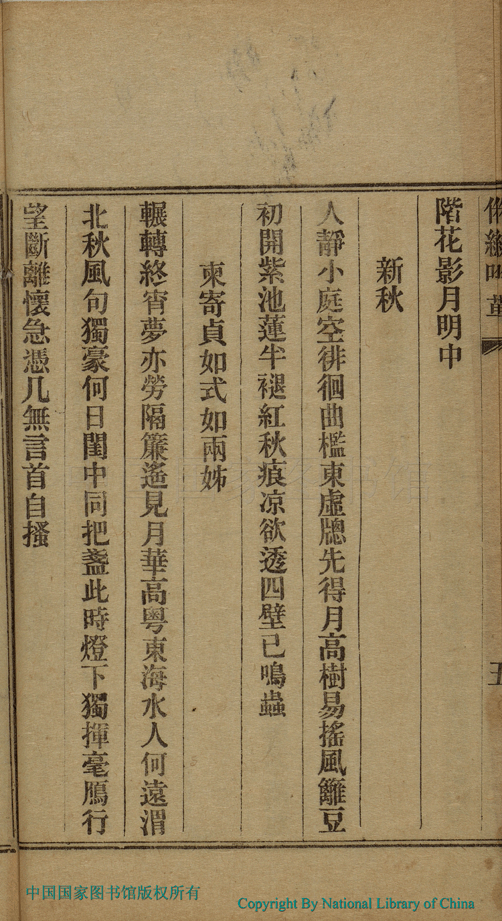 階花影月明中
新秋
人靜小庭空徘徊曲檻東虛牕先得月高樹易搖風籬豆
初開紫池蓮半褪紅秋痕凉欲透四壁已鳴蟲
柬寄貞如式如兩姊
輾轉終宵夢亦勞隔簾遙見月華高粵東海水人何遠渭
北秋風句獨豪何日閨中同把盞此時燈下獨揮毫鴈行
望斷離懷急憑几無言首自搔
中国国家图书馆版权所有
Copyright By National Library of China